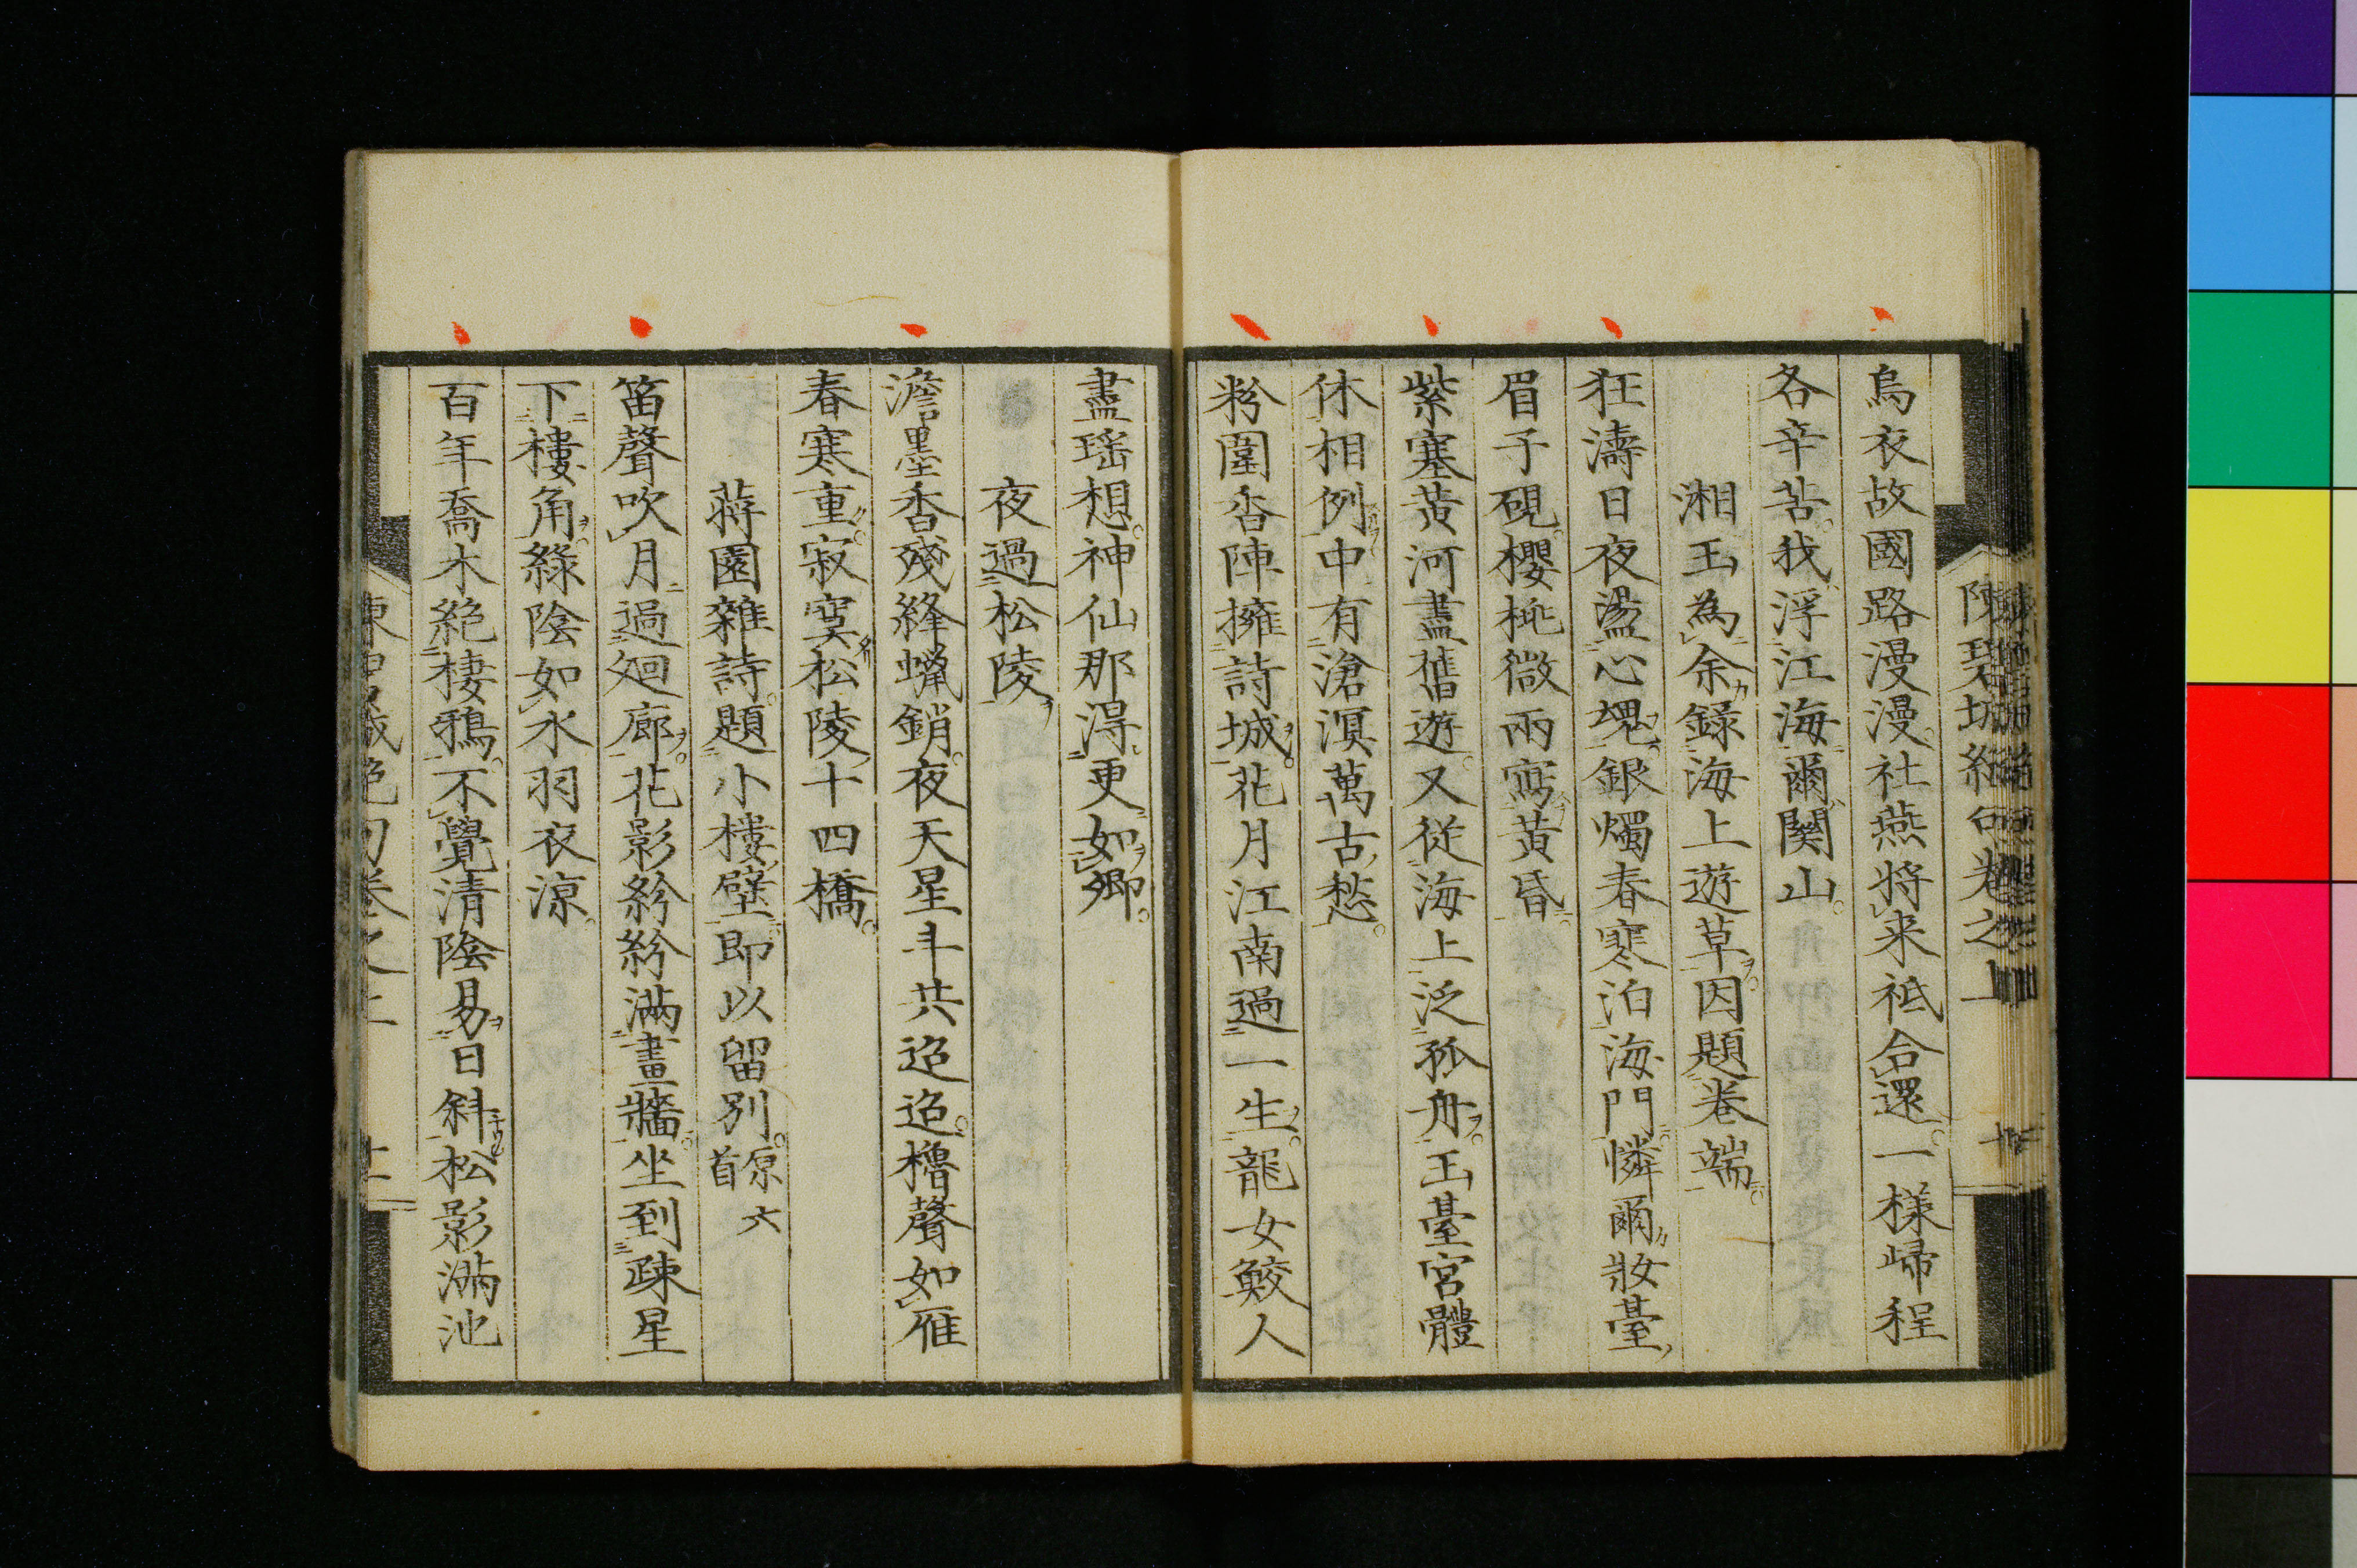 烏衣故國路漫漫社燕將来祗合還一様歸程
各辛苦我浮江海爾關山
湘玉為余録海上遊草因題巻端
狂濤日夜盪心魂銀燭春寒泊海門憐爾妝臺
眉子硯櫻桃微雨寫黄昏
紫塞黄河盡舊遊又従海上泛孤舟玉臺宮體
休相例中有滄溟萬古愁
粉圍香陣擁詩城花月江南過一生龍女鮫人
盡瑶想神仙那得更如卿
夜過松陵
澹墨香殘絳蠟銷夜天星斗共迢迢櫓聲如雁
春寒重寂寞松陵十四橋
蒋園雜詩題小樓壁即以留別原六首
笛聲吹月過廻廊花影紛紛滿畫牆坐到疎星
下樓角緑陰如水羽衣涼
百年喬木絶棲鴉不覺清陰易日斜松影滿池
陳碧城絶句巻之上